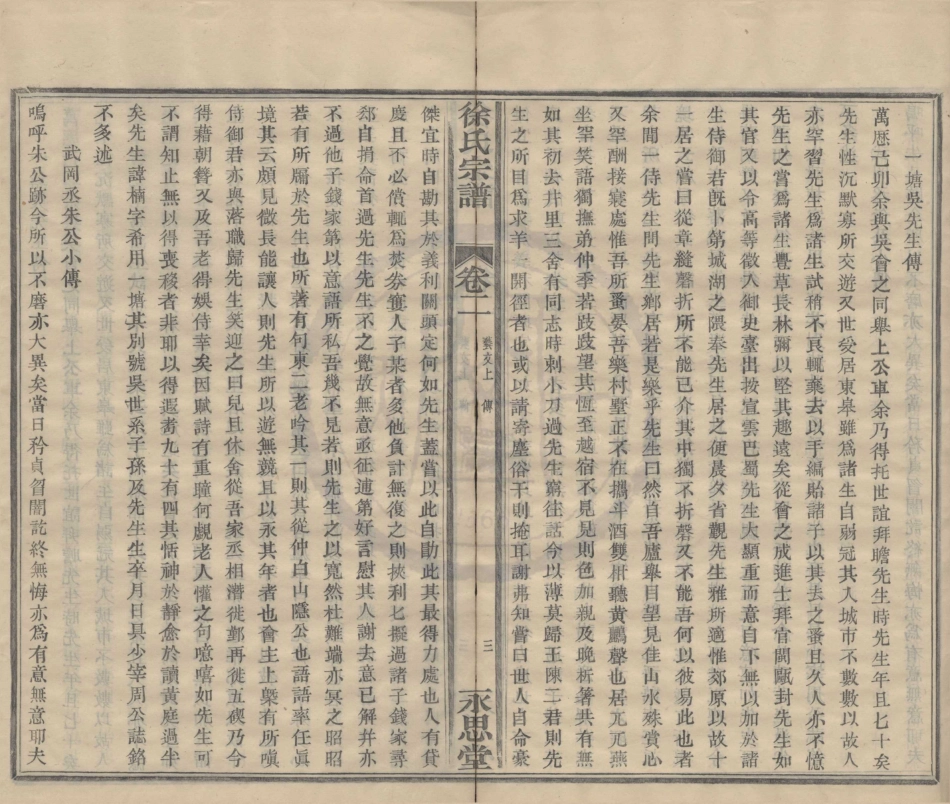 一塘吳先生傳
萬厯己卯余與吳會之同舉上公車余乃得托世誼拜瞻先生時先生年且七十矣
先生性沉默寡所交遊又世受居東皋雖為諸生自弱冠其入城市不數數以故人
亦罕習先生為諸生試稍不良輒棄去以手編貽諸子以其去之蚤且久人亦不憶
先生之嘗為諸生豐草長林彌以堅其趣遠矣從會之成進士拜官閩甌封先生如
其官又以令高等徵入御史臺出按宣雲巴蜀先生大顯重而意自下無以加於諸
生侍御君旣卜第城湖之隈奉先生居之便晨夕省觀先生雅所適惟郊原以故十
一居之嘗曰從章縫磬折所不能已介其中獨不折磬又不能吾何以彼易此也者
余間一侍先生間先生鄉居若是樂乎先生曰然自吾廬舉目望見佳山水殊賞心
又罕酬接寢處惟吾所蚤晏吾樂村墅正不在攜斗酒雙柑聽黃鸝聲也居亢亢燕
坐罕笑語獨撫弟仲季若跂跂望其恆至越宿不見見則色加親及晚析箸共有無
如其初去井里三舍有同志時刺小刀過先生窮往話今以薄莫歸王陳二君則先
生之所目為求羊 開徑者也或以請寄塵俗干則掩耳謝弗知嘗曰世人自命豪
徐氏宗譜
卷二
藝文上 傳
三
永思堂
傑宜時自勘其於義利關頭定何如先生蓋嘗以此自助此其最得力處也人有貸
慶且不必償輒為焚券窶人子某者多他負計無復之則挾利匕擬過諸子錢家尋
郄自捐命首過先生先生不之覺故無意亟征逋第好言慰其人謝去意已解幷亦
不過他子錢家第以意語所私吾幾不見若則先生之以寬然杜難端亦冥之昭昭
若有所屬於先生也所著有句東二老吟其一則其從仲白山隱公也語語率任眞
境其云頗見徵長能讓人則先生所以遊無競且以永其年者也會主上槩有所嗔
侍御君亦與落職歸先生笑迎之曰兒且休舍從吾家丞相潛徙鄞再徙五稧乃今
得藉朝簪又及吾老得娛侍幸矣因賦詩有重瞳何覷老人懽之句噫嘻如先生可
不謂知止無以得喪移者非耶以得遐耆九十有四其恬神於靜惫於讀黃庭過半
矣先生諱楠字希用一塘其別號吳世系子孫及先生生卒月日具少宰周公誌銘
不多述
武岡丞朱公小傳
嗚呼朱公跡今所以不磨亦大異矣當日矜貞習闇訖終無悔亦為有意無意耶夫